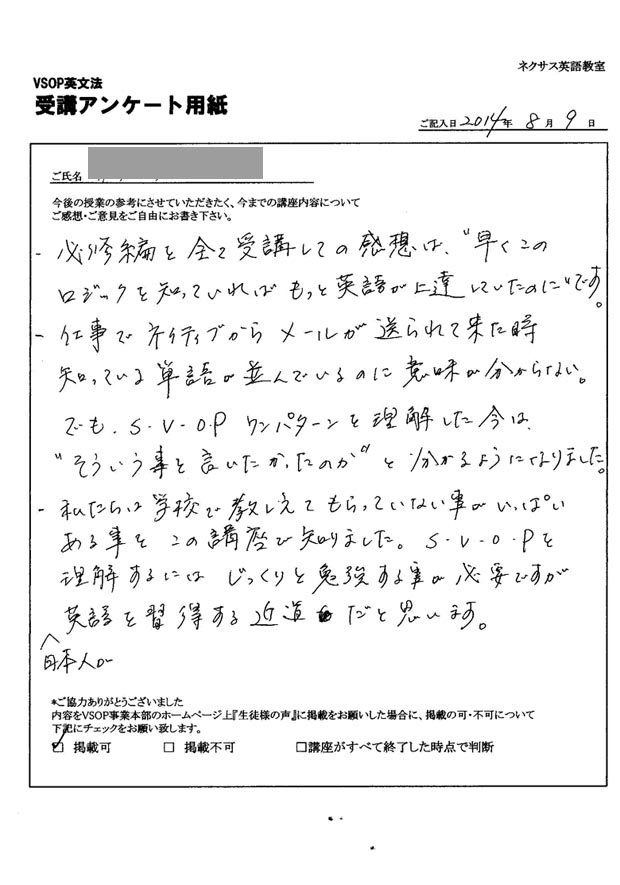 ネクサス英語教室
VSOP英文法
受講アンケート用紙
ご記入日 2014年 8月 9日
ご氏名
今後の授業の参考にさせていただきたく、今までの講座内容について
ご感想・ご意見をご自由にお書き下さい。
- 必修編を全て受講しての感想は、"早くこの
ロジックを知っていればもっと英語が上達していたのに"です。
- 仕事でネイティブからメールが送られて来た時
知っている単語が並んでいるのに意味が分からない。
でも、S・V・O・Pワンパターンを理解した今は、
"そういう事を言いたかったのか"と分かるようになりました。
- 私たちは学校で教えてもらっていない事がいっぱい
ある事をこの講座で知りました。S・V・O・Pを
理解するにはじっくりと勉強する事が必要ですが
英語を習得する近道だと思います。
日本人が
*ご協力ありがとうございました
内容をVSOP事業本部のホームページ上『生徒様の声』に掲載をお願いした場合に、掲載の可・不可について
下記にチェックをお願い致します。
☑ 掲載可 □ 掲載不可 □講座がすべて終了した時点で判断